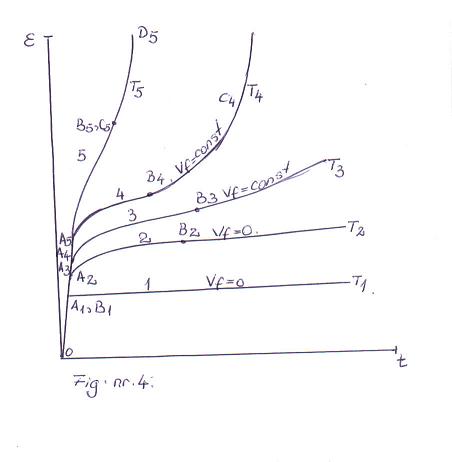 ε
D5
T5
C4
T4
B5,C5
5
B4
Vf=const
4
B3
Vf=const
T3
3
B2
Vf=0.
T2
2
A5
A4
A3
A2
1
Vf=0
T1.
A1,B1
0
t
Fig. nr. 4.